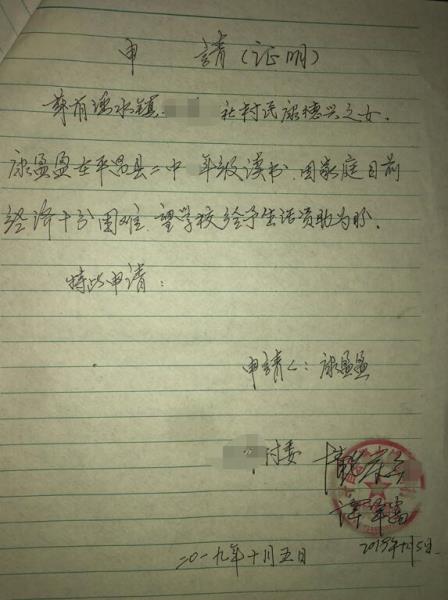 申 請(证明)
兹有湧水镇 社村民康德兴之女,
康盈盈在平昌县二中 年级读书,因家庭目前
经济十分困难,望学校给予生活资助为盼.
特此申请:
申請人:康盈盈
村委
二〇一九年十月五日
2019年10月5日